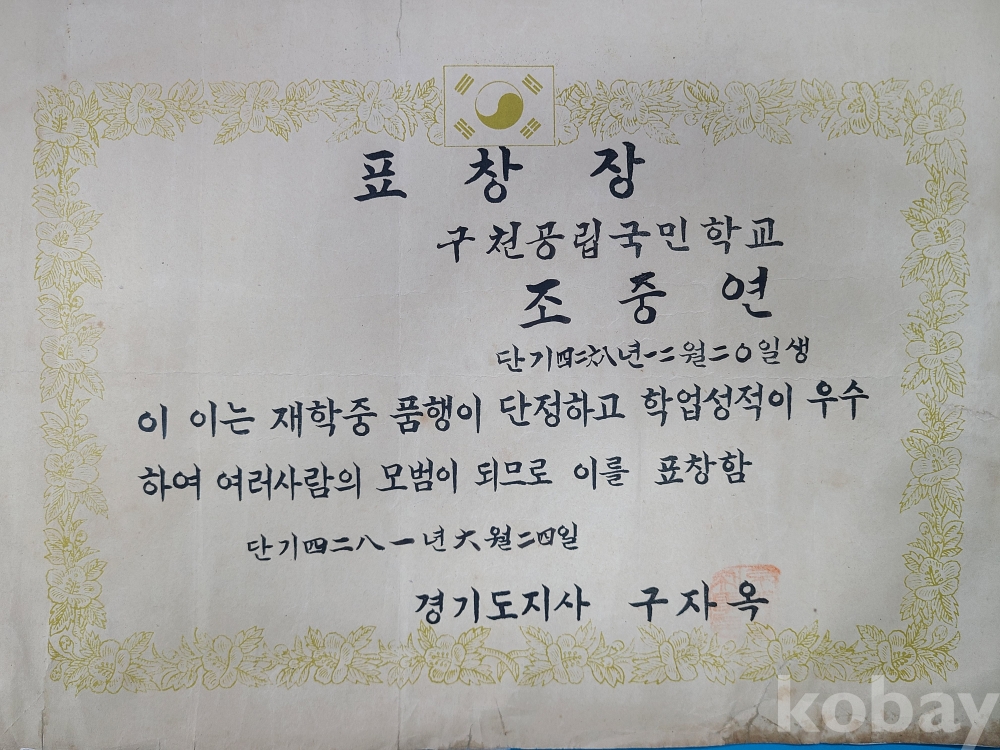 표창장
구천공립국민학교
조중연
단기四二六八年一二월二〇일생
이 이는 재학중 품행이 단정하고 학업성적이 우수
하여 여러사람의 모범이 되므로 이를 표창함
단기四二八一년六월二四일
경기도지사 구자옥
kobay